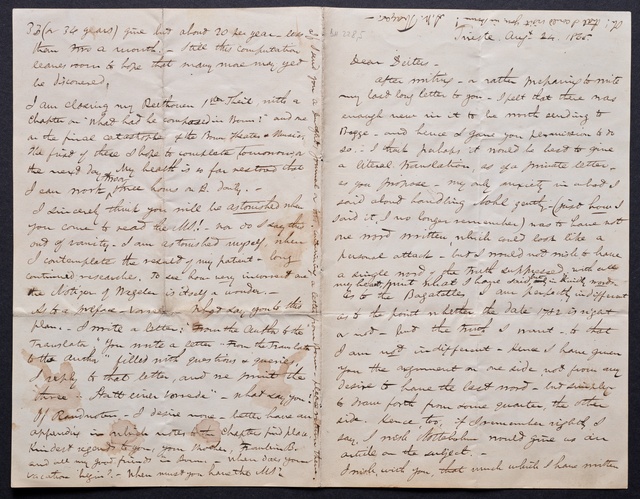 Trieste, Aug. 24. 1865
Dear Deiters.
After writing – or rather preparing to write
my last long letter to you – I felt that there was
enough new in it to be worth sending to
Bagge – and hence I gave you permission to do
so. – I think perhaps it would be best to give
a literal translation as of a private letter –
as you propose – my only anxiety in what I
said about handling Nohl gently – (just how I
said it, I no longer remember) was to have not
one word written, which could look like a
personal attack – but I would not wish to have
a single word of the truth suppressed – with all
my heart, print what I have said, but in kindly words.
As to the Bagatelles I am perfectly indifferent
as to the point whether the date 1782 is right
or not – but the truth I want – to that
I am not indifferent – Hence I have given
you the argument on one side not from any
desire to have the last word – but simply
to draw forth from some quarter, the other
side. Hence too, if I remember rightly, I
say, I wish Nottebohm would give us an
article on the subject. –
I wish, with you, that much which I have written
33 (or 34 years) give but about 20 per year – less
than two a month. – Still this computation
leaves room to hope that many more may yet
be discovered.
I am closing my Beethoven 1st Theil with a
Chapter on "What had he composed in Bonn?" and one
on the final catastrophe of the Bonn Theater & Music.
The first of these I hope to complete tomorrow or
the next day. My health is so far restored that
I can work three hours on B. daily. –
I sincerely think you will be astonished when
you come to read the MS! – nor do I say this
out of vanity. I am astonished myself, when
I contemplate the result of my patient – long
continued researches. To see how very incorrect are
the Notizen of Wegeler is itself a wonder.
As to a preface – What say you to this
plan. – I write a letter; "From the Author to the
Translator", You write a letter – "From the Translator
to the Author" filled with questions & queries;
I reply to that letter, and we print the
three "Statt einer Vorrede" – What say you?
If Randnoten – I desire none – better have an
appendix in which notes to the Chapter find place.
Kindest regards to you, your Mother,
and all my good friends in Bonn. – When does your
vacation begin? – When must you have the MS?